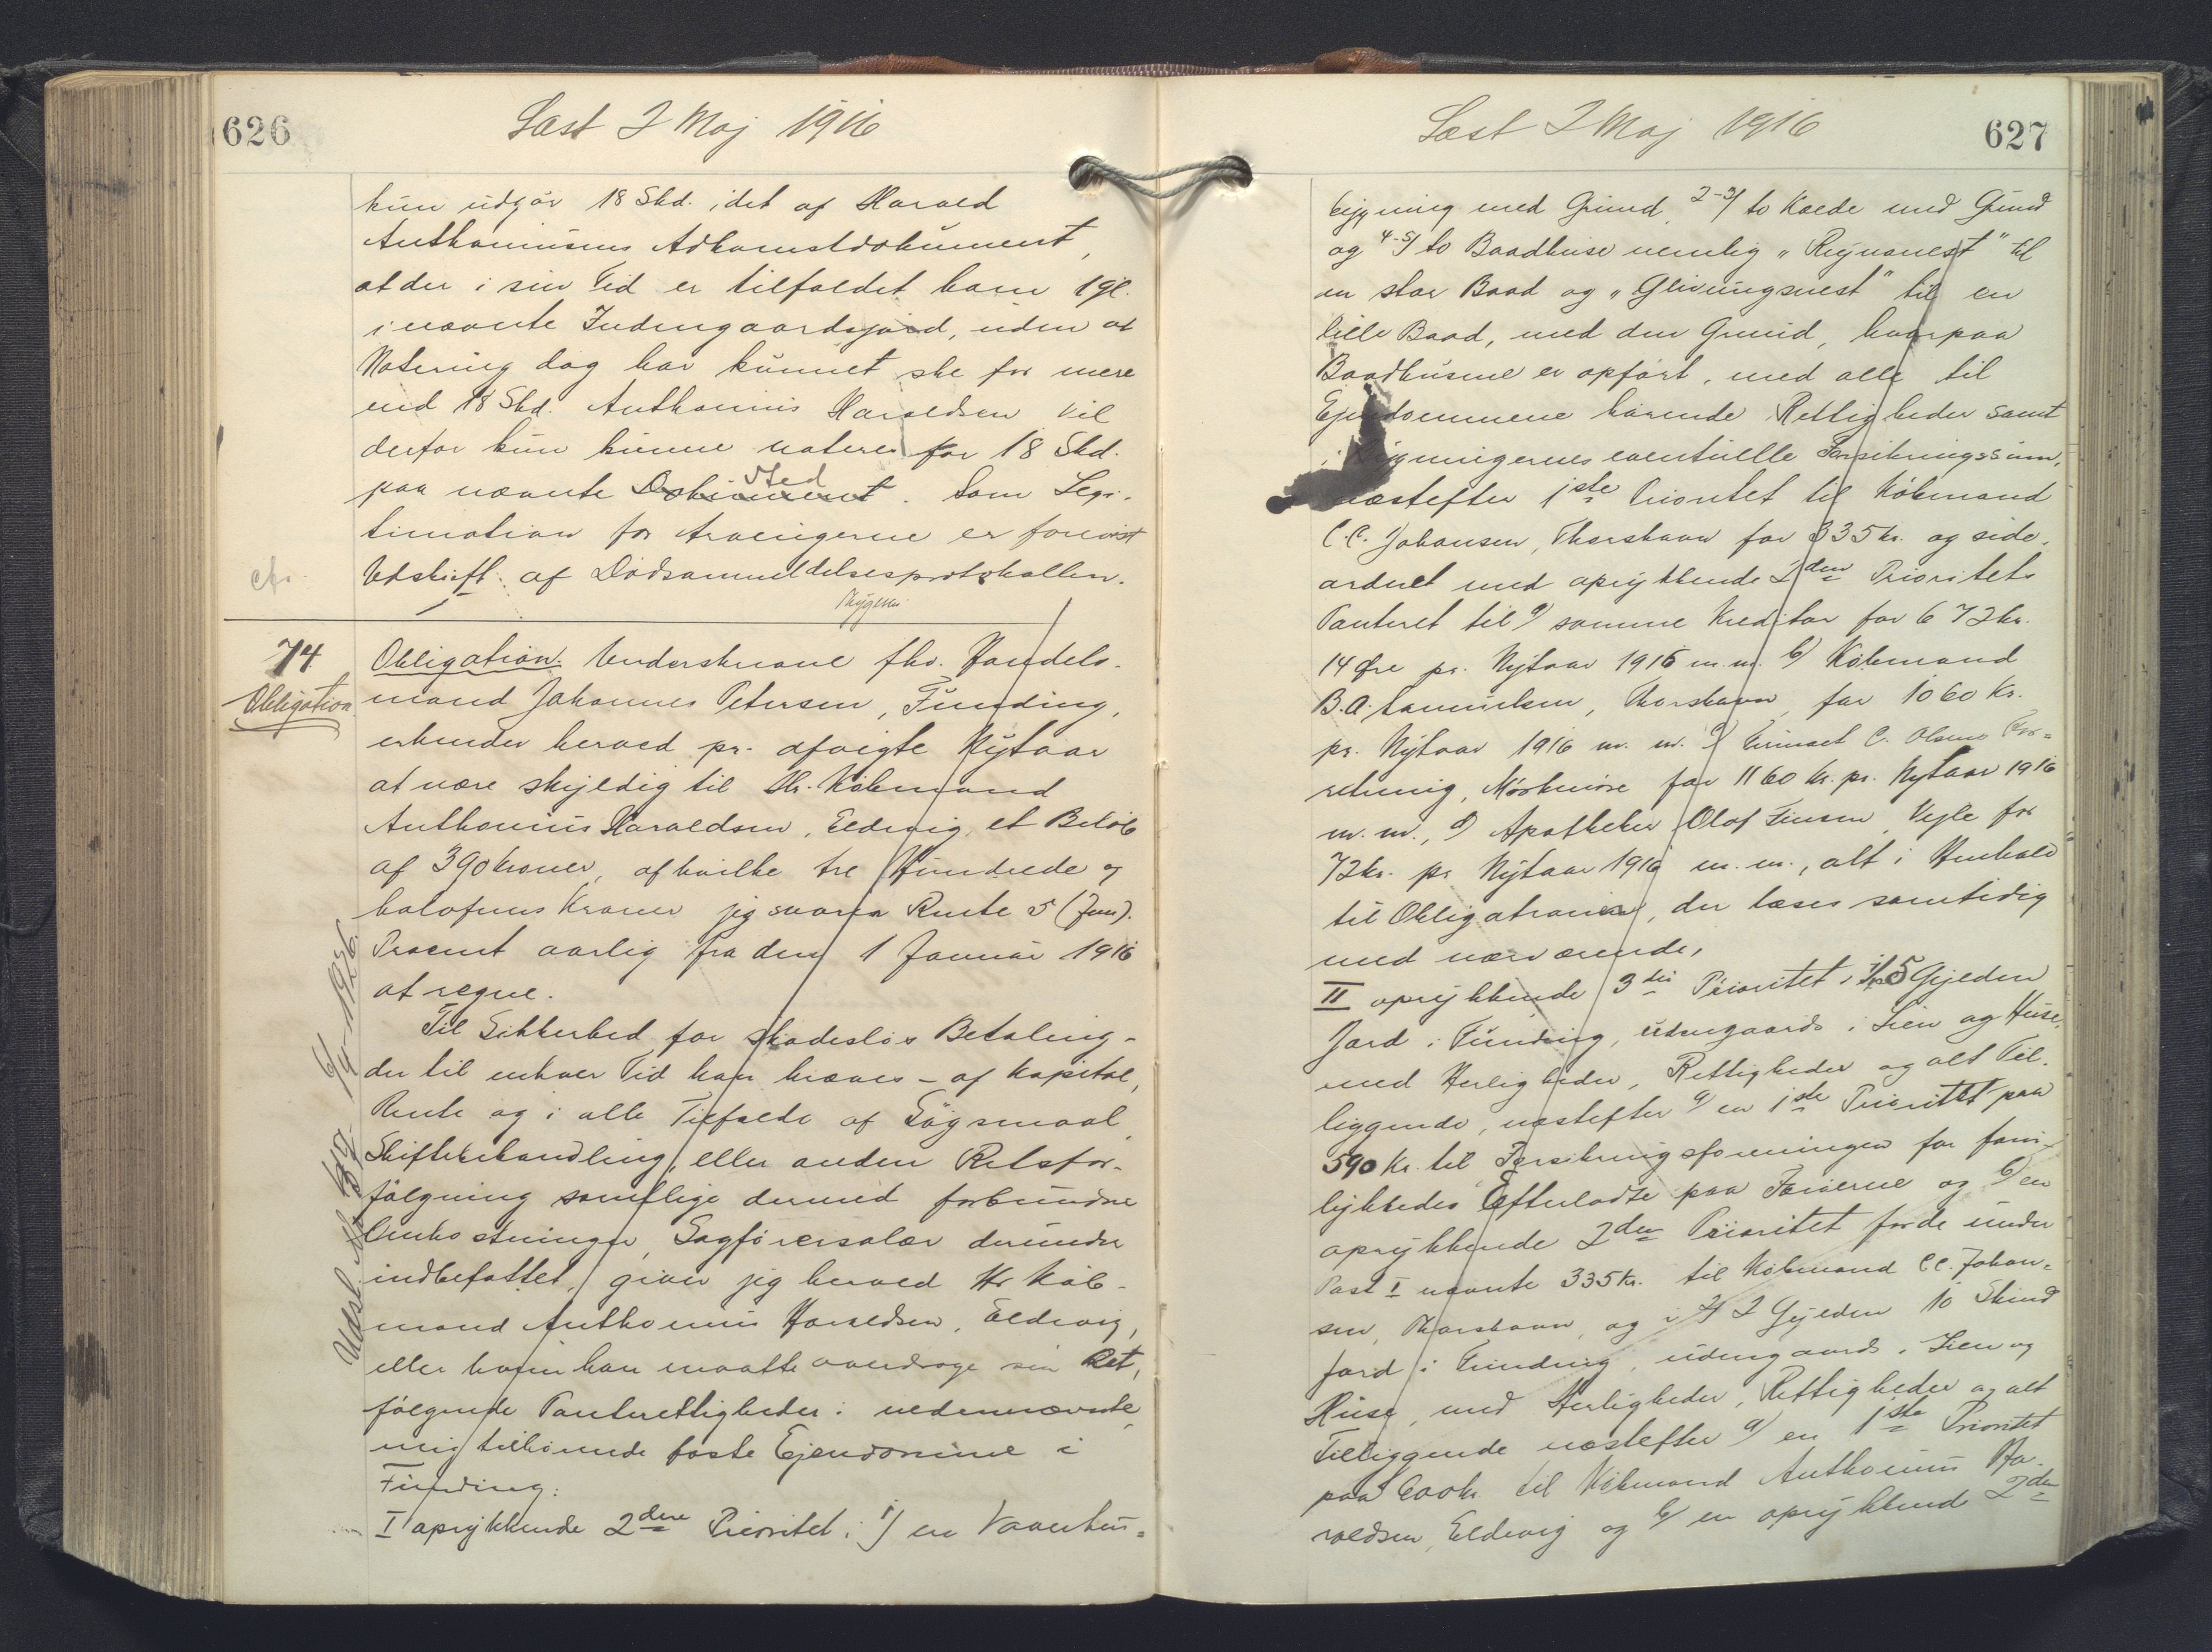 626
Læst 2 Maj 1916
kun udgør 18 Skd. idet af Harald
Anthoniusens Adkomstdokument,
at der i sin Tid er tilfaldet ham 1 gl.
i nævnte Indengaardsjord, uden at
Notering dog har kunnet ske for mere
end 18 Skd. Anthonius Haraldsen vil
derfor kun kunne noteres for 18 Skd.
paa nævnte Dokument Sted. Som Legi-
timation for Arvingerne er forevist
Udskrift af Dødsanmeldelsesprotokollen.
cfr.
74
Obligation
Obligation. Underskrevne fhv. Handels-
mand Johannes Petersen, Funding,
erkender herved pr. afvigte Nytaar
at være skyldig til Hr. Købmand
Anthonius Haraldsen, Eldevig, et Beløb
af 390 Kroner, af hvilke tre Hundrede og
halvfems Kroner jeg svarer Rente 5 (fem)
Procent aarlig fra den 1 Januar 1916
at regne.
Til Sikkerhed for skadesløs Betaling -
der til enhver Tid kan kræves - af Kapital,
Rente og i alle Tilfælde af Søgsmaal,
Skiftebehandling, eller anden Retsfor-
følgning samtlige dermed forbundne
Omkostninger, Sagførersalær derunder
indbefattet, giver jeg herved Hr Køb-
mand Anthonius Haraldsen, Eldevig,
eller hvem han maatte overdrage sin Ret,
følgende Panterettigheder i nedennævnte,
mig tilhørende faste Ejendomme i
Funding:
I oprykkende 2den Prioritet i 1) en Vaanhus=
Udsl.
627
Læst 2 Maj 1916
bygning med Grund, 2-3) to Hjelde med Grund
og 4-5) to Baadhuse nemlig "Reynanest" til
en stor Baad og "Glivungsnest" til en
lille Baad, med den Grund, hvorpaa
Baadhusene er opført, med alle til
Ejendommene hørende Rettigheder samt
i Bygningernes eventuelle Forsikringssum,
næstefter 1ste Prioritet til Købmand
C.C. Johansen, Thorshavn for 335 kr. og side-
ordnet med oprykkende 2den Prioritets
Panteret til a) samme Kreditor for 672 kr.
14 Øre pr. Nytaar 1916 m.m. b) Købmand
B.A. Samuelsen, Thorshavn, for 1060 Kr.
pr. Nytaar 1916 m. m. c) Enimset C. Olsens For=
retning, Mørkøre for 1160 kr. pr. Nytaar 1916
m. m., d) Apotheker Olaf Finsen, Vejle for
72 kr. pr. Nytaar 1916 m. m., alt i Henhold
til Obligationer, der læses samtidig
med nærværende,
II oprykkende 3die Prioritet i 5 Gylden
Jord i Funding, udengaards i Lien og Huse,
med Herligheder, Rettigheder og alt Til-
liggende, næstefter a) en 1ste Prioritet paa
590 Kr. til Forsikringsforeningen for foru-
lykkedes Efterladte paa Færøerne og b) en
oprykkende 2den Prioritet for de under
Post I nævnte 335 Kr. til Købmand C.C. Johan-
sen, Thorshavn, og i 2 Gylden 10 Skind
Jord i Funding, udengaards i Lien og
Huse, med Herligheder, Rettigheder og alt
Tilliggende næstefter a) en 1ste Prioritet
paa 600 kr til Købmand Anthonius Ha-
raldsen, Eldevig og b) en oprykkende 2den